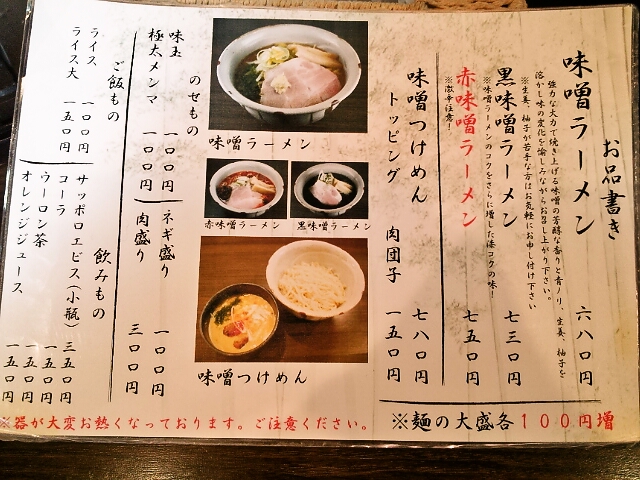 お品書き
味噌ラーメン 六八〇円
強力な大力で焼き上げる味噌の芳醇な香りと青ノリ、生姜、柚子を
溶かし味の変化を愉しみながらお召し上がり下さい。
※生姜、柚子が苦手な方はお気軽にお申し付け下さい
黒味噌ラーメン 七三〇円
※味噌ラーメンのコクをさらに増した漆コクの味!
赤味噌ラーメン 七五〇円
※激辛注意!
味噌つけめん 七八〇円
トッピング 肉団子 一五〇円
※麺の大盛各100円増
味噌ラーメン
赤味噌ラーメン
黒味噌ラーメン
味噌つけめん
のせもの
味玉 一〇〇円
極太メンマ 一〇〇円
ネギ盛り 一〇〇円
肉盛り 三〇〇円
ご飯もの
ライス 一〇〇円
ライス大 一五〇円
飲みもの
サッポロエビス(小瓶) 三五〇円
コーラ 一五〇円
ウーロン茶 一五〇円
オレンジジュース 一五〇円
※器が大変お熱くなっております。ご注意ください。